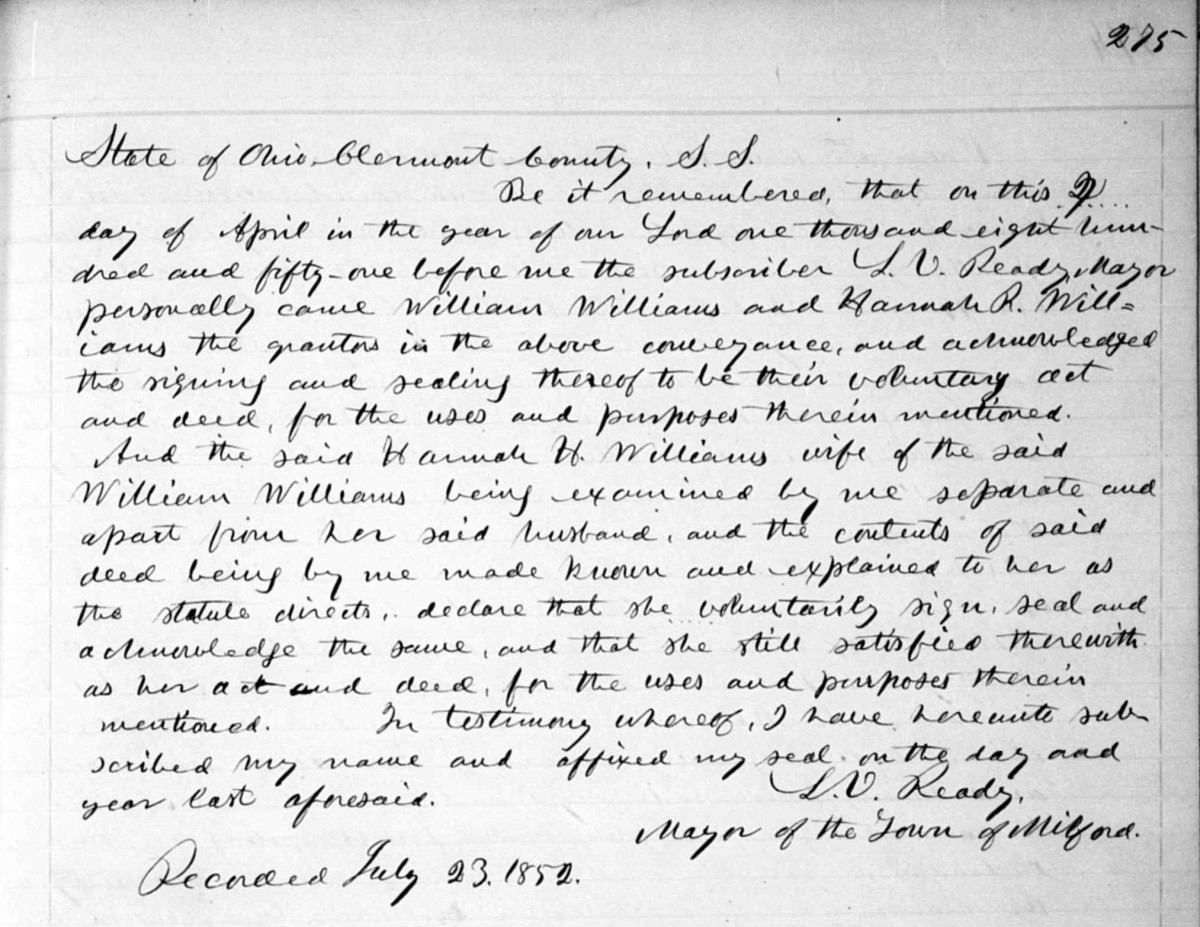 275
State of Ohio Clermont County, S. S.
Be it remembered, that on this
day of April in the year of our Lord one thousand eight hun-
dred and fifty-one before me the subscriber L. V. Ready, Mayor
personally came William Williams and Hannah R. Will=
iams the grantors in the above conveyance, and acknowledged
the signing and sealing thereof to be their voluntary act
and deed, for the uses and purposes therein mentioned.
And the said Hannah H. Williams wife of the said
William Williams being examined by me separate and
apart from her said husband, and the contents of said
deed being by me made known and explained to her as
the statute directs, declare that she voluntarily sign, seal and
acknowledge the same, and that she still satisfied therewith
as her act and deed, for the uses and purposes therein
mentioned. In testimony whereof, I have hereunto sub-
scribed my name and affixed my seal on the day and
year last aforesaid. L. V. Ready,
Mayor of the Town of Milford.
Recorded July 23. 1852.